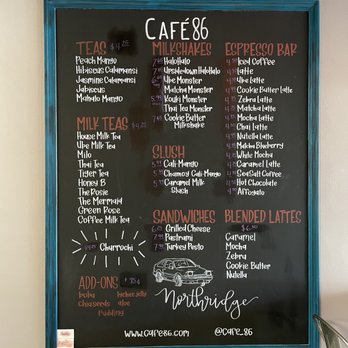 CAFÉ 86
TEAS
Peach Mango
Hibiscus Calamansi
Jasmine Calamansi
Jabiscus
Mamalo Mango
MILK TEAS
House Milk Tea
Ube Milk Tea
Milo
Thai Tea
Tiger Tea
Honey B
The Rosie
The Mermaid
Green Rose
Coffee Milk Tea
Churrochi
ADD-ONS
boba lychee jelly
Chia seeds aloe
Pudding
MILKSHAKES
HaloHalo
UpsideDown HaloHalo
Ube Monster
Matcha Monster
Vouya Monster
Thai Tea Monster
Cookie Butter
Milkshake
SLUSH
Cali Mango
Chamoy Cali Mango
Caramel Milk
Slush
SANDWICHES
Grilled Cheese
Pastrami
Turkey Pesto
ESPRESSO BAR
Iced Coffee
Latte
Ube Latte
Cookie Butter Latte
Zebra Latte
Matcha Latte
Mocha Latte
Chai Latte
Nutella Latte
Matcha Blueberry
White Mocha
Caramel Latte
SeaSalt Coffee
Hot Chocolate
Affogato
BLENDED LATTES
Caramel
Mocha
Zebra
Cookie Butter
Nutella
Northridge
www.cafe86.com @cafe_86